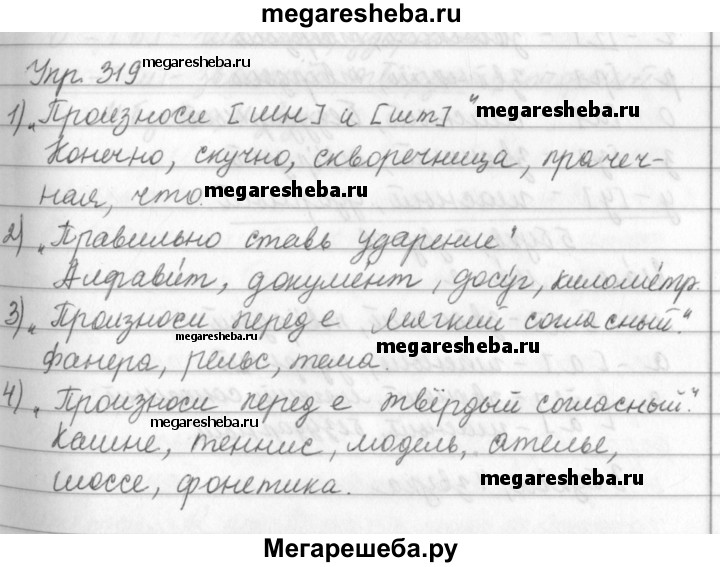 megaresheba.ru
Упр. 319 megaresheba.ru
1) „Произноси [шн] и [шт]" megaresheba.ru
Конечно, скучно, скворечница, прачеч-
ная, что. megaresheba.ru
2) „Правильно ставь ударение"
megaresheba.ru
Алфави́т, докуме́нт, досу́г, киломе́тр.
3) „Произноси перед е мягкий согласный."
megaresheba.ru
фанера, рельс, тема. megaresheba.ru
4) „Произноси перед е твёрдый согласный."
megaresheba.ru
Кашне, теннис, модель, ателье,
шоссе, фонетика. megaresheba.ru
Мегарешеба.ру